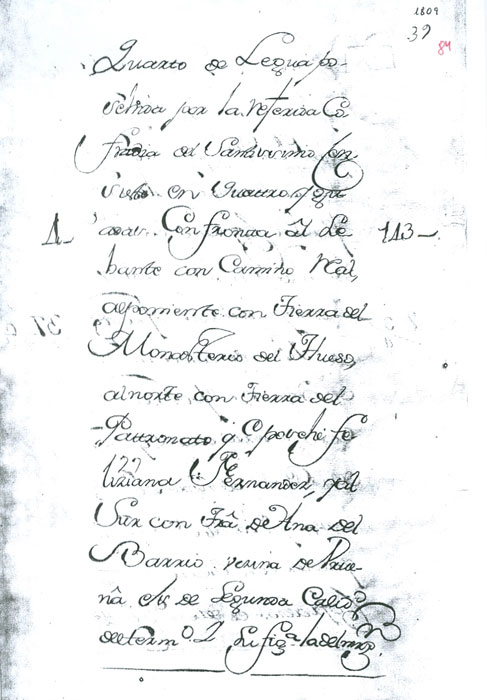 1809
39
84
Quarto de Legua po-
sehida por la referida Co
fradia del Santissimo Con
siste en Quattro
1 - Confronta al Le 113 -
bante con Camino Real,
alponiente con Tierra del
Monasterio del Hueso,
alnorte con Tierra del
Pattronato q
Fernandez, y al
Sur con Trâ de Ana del
Barrio vezina de
nâ es de Segunda Calid
determº 2 su figª la delmxn